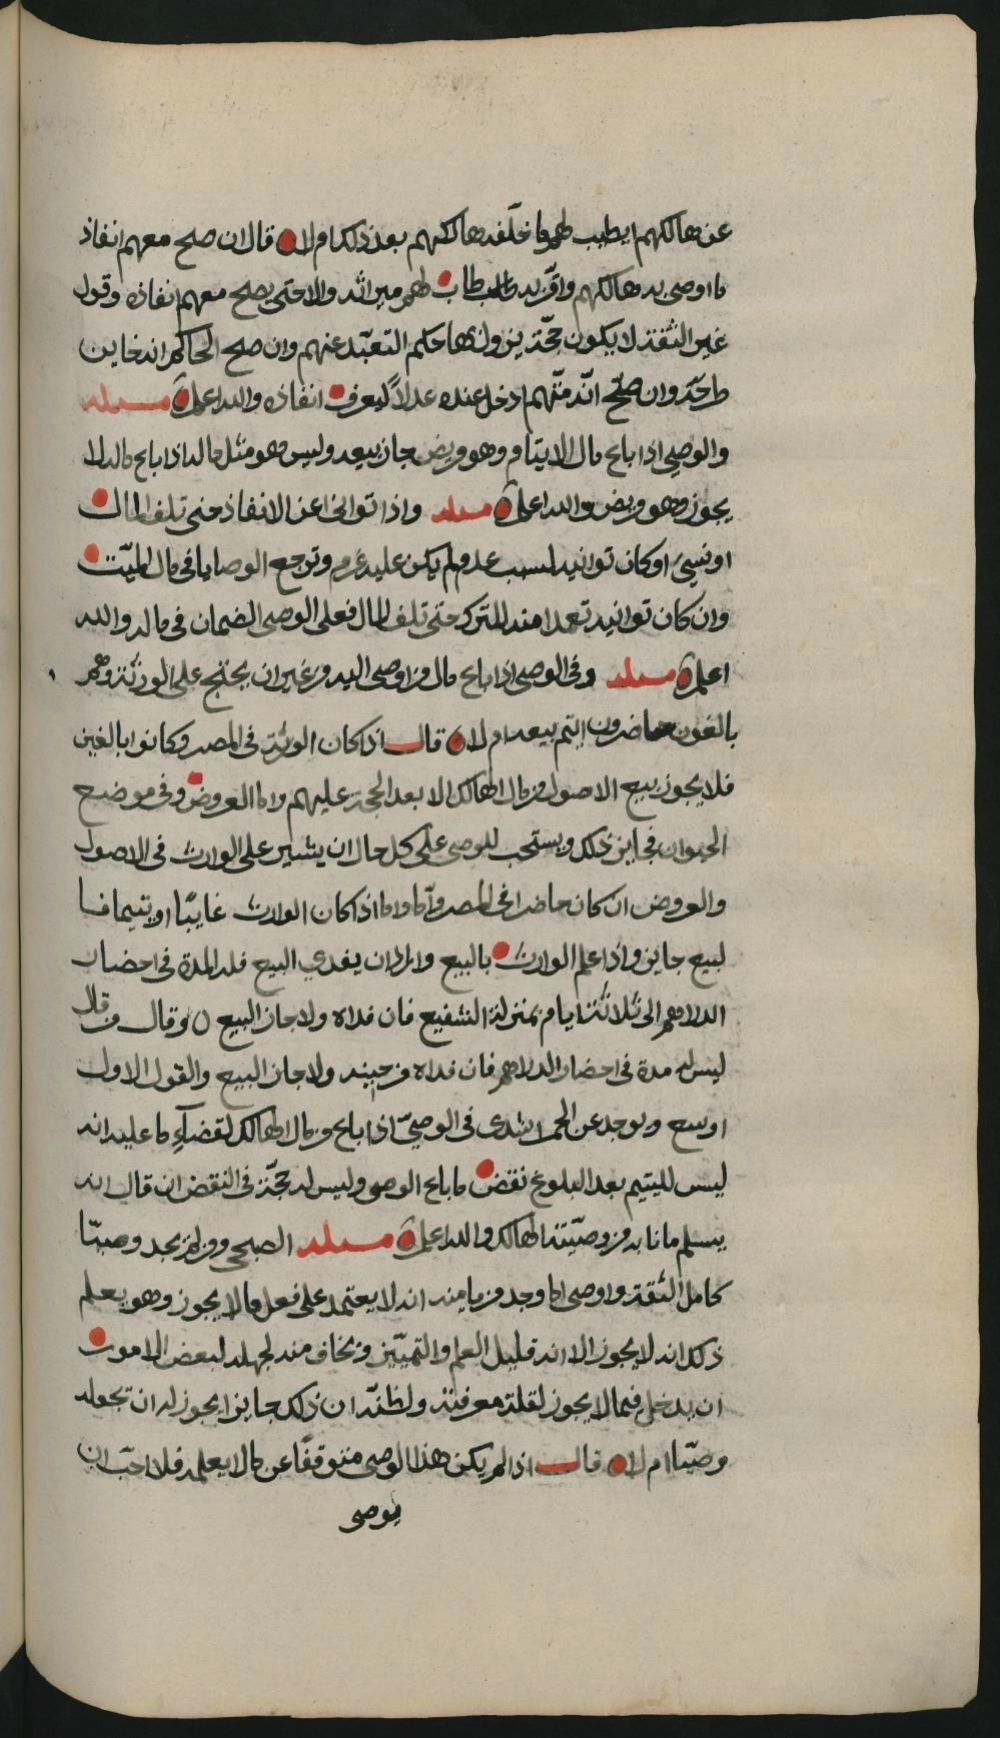 عن هالكهم ايطيب لهم ما خلّفه هالكهم بعد ذلك ام لا قال ان صلح معهم انفاذ
ما اوصى به هالكهم واقرّ به طاب لهم ميراثه والا حتى يصلح معهم انفاذه وقول
غير الثقة لا يكون حجّة يزول بها حكم التعبّد عنهم وان صلح الحاكم انه خاين
طرحه وان صحّ انّه متّهم ادخل عنده عدلاً ليعرف انفاذه والله اعلم مسئله
والوصي اذا باع مال الايتام وهو مريض جاز بيعه وليس هو مثل ماله اذا باع ماله لا
يجوز وهو مريض والله اعلم مسئله واذا توانى عن الانفاذ حتى تلف المال
او نسي او كان توانيه لسبب عدم لم يكن عليه غرم وترجع الوصايا في مال الميّت
وان كان توانيه تعمدا منه للترك حتى تلف المال فعلى الوصي الضمان في ماله والله
اعلم مسئله وفي الوصي اذا باع مال من اوصى اليه من غير ان يحتج على الورثة وهم
بالغون حاضرون ايتم بيعه ام لا قال اذا كان الورثة في المصر وكانوا بالغين
فلا يجوز بيع الاصول من مال الهالك الا بعد الحجة عليهم واما العروض وفي موضع
الحيوان فجايز ذلك ويستحب للوصي على كل حال ان يشير على الوارث في الاصول
والعروض ان كان حاضرا في المصر واما اذا كان الوارث غايبًا او يتيما فا
لبيع جايز واذا علم الوارث بالبيع واراد ان يفدي البيع فله المدة في احضار
الدراهم الى ثلاثة ايام بمنزلة الشفيع فان فداه والا جاز البيع وقال من قال
ليس له مدة في احضار الدراهم فان فداه من حينه والا جاز البيع والقول الاول
اوسع ويوجد عن الحمراشدي في الوصيّ اذا باع من مال الهالك لقضآء ما عليه انه
ليس لليتيم بعد البلوغ نقض ما باع الوصي وليس له حجّة في النقض ان قال انه
يسلم ما نابه من وصيّة الهالك والله اعلم مسئله الصبحي ومن لم يجد وصيّا
كامل الثقة واوصى لما وجد من يامنه انه لا يعتمد على فعل ما لا يجوز وهو يعلم
ذلك انه لا يجوز الا انه قليل العلم والتمييز ويخاف منه لجهله لبعض الامور
ان يدخل فيما لا يجوز لقلة معرفته ولظنّه ان ذلك جايز ايجوز له ان يجعله
وصيّا ام لا قال اذا لم يكن هذا الوصي متوقفًا عن ما لا يعلمه فلا احبّ ان
يوصي